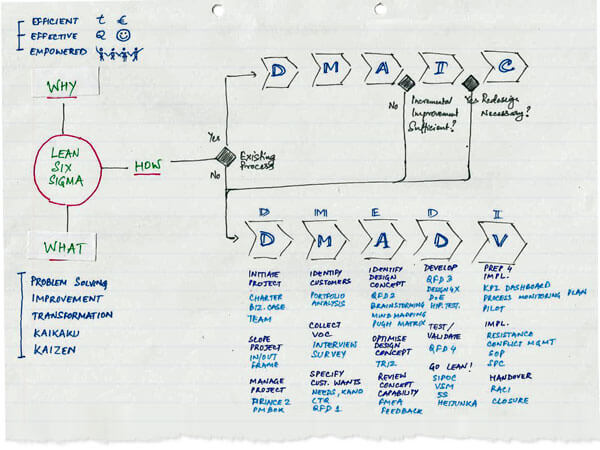 EFFICIENT t €
EFFECTIVE Q
EMPOWERED
WHY
LEAN
SIX
SIGMA
HOW
WHAT
PROBLEM SOLVING
IMPROVEMENT
TRANSFORMATION
KAIKAKU
KAIZEN
Yes
Existing
Process
No
D M A I C
No
Incremental
Improvement
Sufficient?
Yes
Redesign
Necessary?
D M E D I
D M A D V
INITIATE
PROJECT
CHARTER
BIZ. CASE
TEAM
SCOPE
PROJECT
IN/OUT
FRAME
MANAGE
PROJECT
PRINCE 2
PMBOK
IDENTIFY
CUSTOMERS
PORTFOLIO
ANALYSIS
COLLECT
VOC
INTERVIEW
SURVEY
SPECIFY
CUST. WANTS
NEEDS, KANO
CTQ
QFD 1
IDENTIFY
DESIGN
CONCEPT
QFD 2
BRAINSTORMING
MIND MAPPING
PUGH MATRIX
OPTIMISE
DESIGN
CONCEPT
TRIZ
REVIEW
CONCEPT
CAPABILITY
FMEA
FEEDBACK
DEVELOP
QFD 3
DESIGN 4X
DoE
HYP. TEST.
TEST/
VALIDATE
QFD 4
GO LEAN!
SIPOC
VSM
5S
HEIJUNKA
PREP 4
IMPL.
KPI DASHBOARD
PROCESS MONITORING PLAN
PILOT
IMPL.
RESISTANCE
CONFLICT MGMT
SOP
SPC
HANDOVER
RACI
CLOSURE